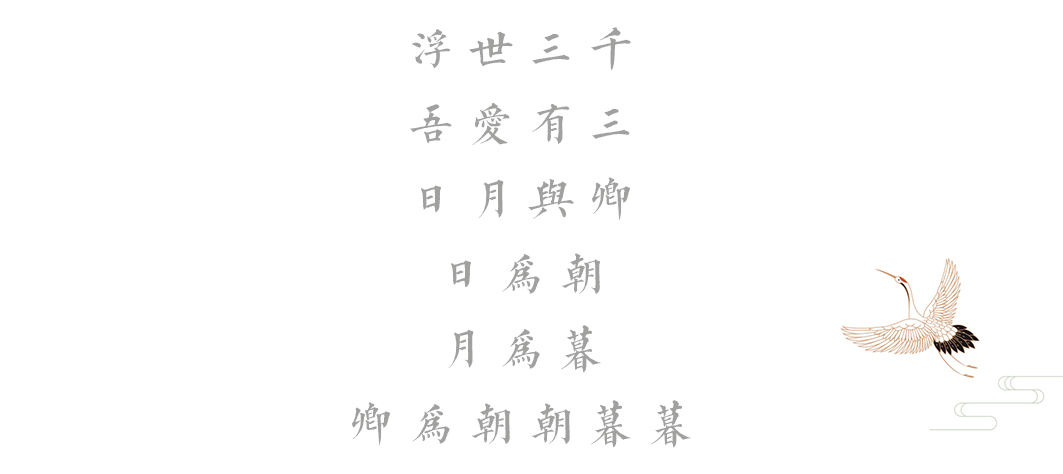 浮世三千
吾愛有三
日月與卿
日爲朝
月爲暮
卿爲朝朝暮暮